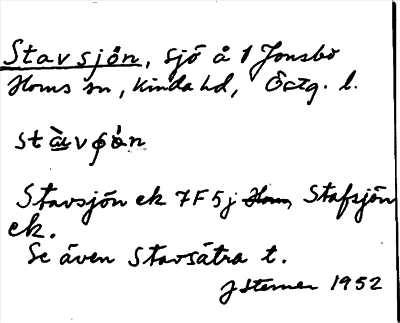 Stavsjön, sjö å 1 Jonsbo
Horns sn, Kinda hd, Östg. l.
stàvʃö́n
Stavsjön ek 7F5j Horn, Stafsjön
ek.
Se även Stavsätra t.
J Sterner 1952